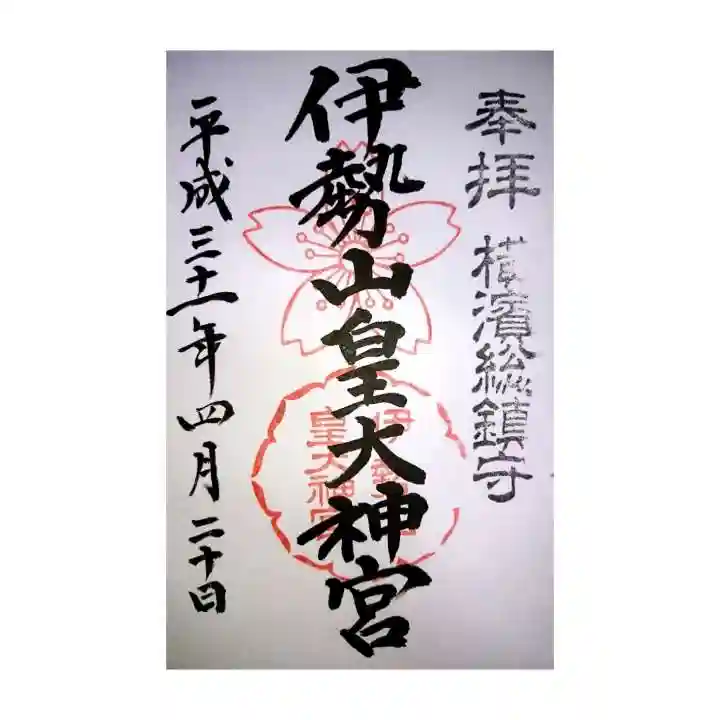 奉拝 横濱総鎮守
伊勢山皇大神宮
伊勢山
皇大神宮
平成三十一年四月二十日